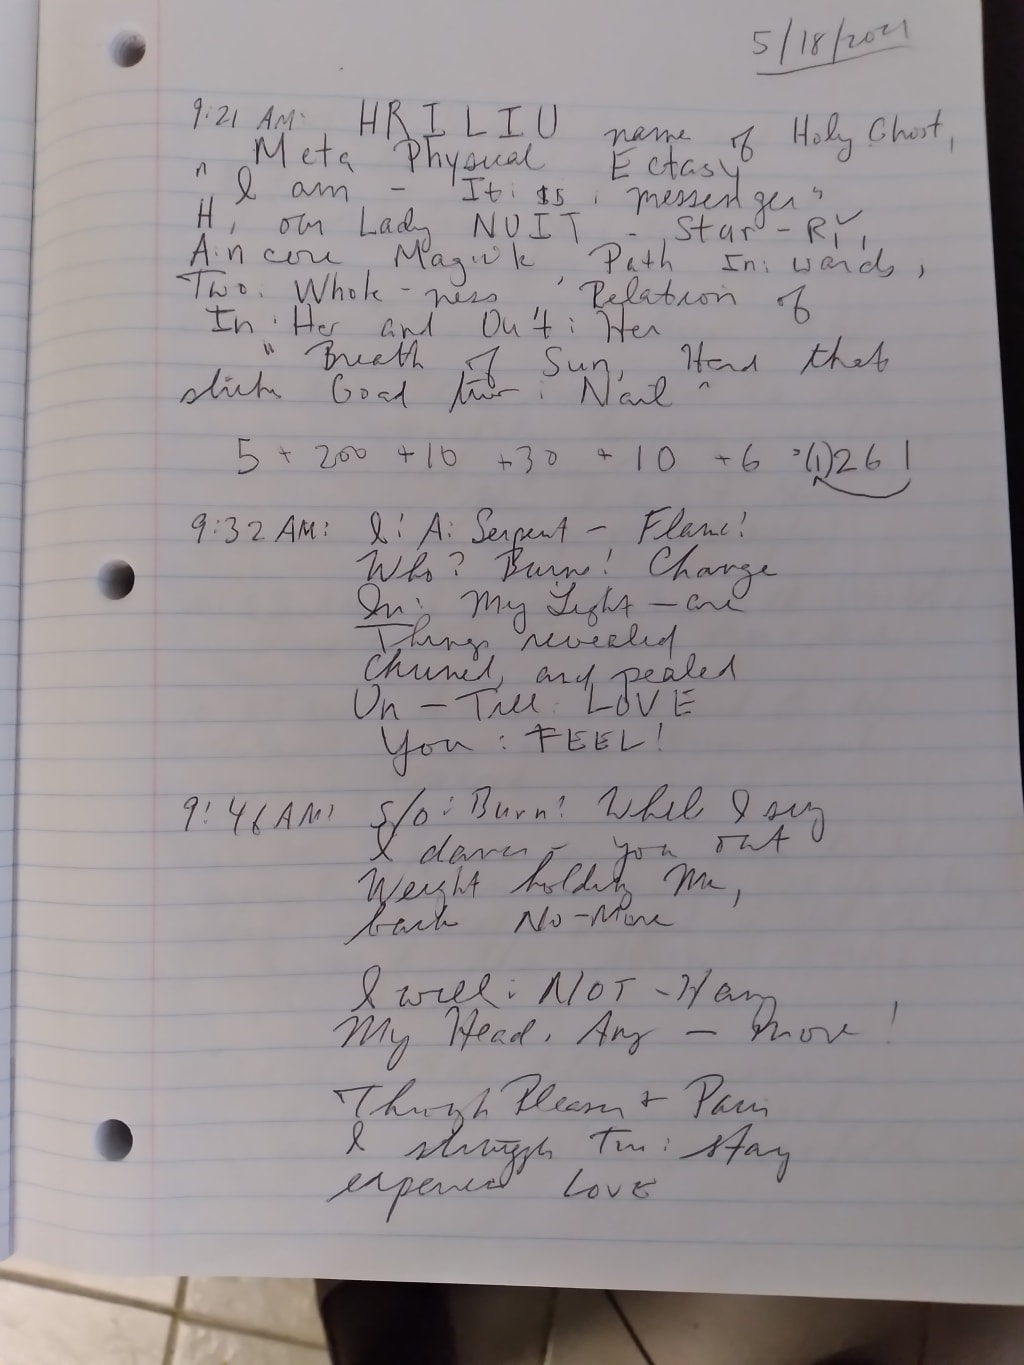 5/18/2021
9:21 AM: HRILIU name of Holy Ghost,
" Meta Physical Ectasy
I am - It: $5 : messenger"
H, our Lady NUIT - Star -
Ain core Magick Path In: wards,
Two: Whole-ness, Relation of
In: Her and Ou't: Her
" Breath of Sun, Hand that
Goad : Nail "
5 + 200 + 10 + 30 + 10 + 6 = (1)261
9:32 AM: I! A: Serpent - Flame!
Who? Burns! Change
In: My Light - are
Things revealed
Churned, and pealed
Un - Till: LOVE
You : FEEL!
9:46 AM: S/O: Burn! While I sing
I dance - you out
Weight holding Me,
back No-More
I will: NOT - Hang
My Head, Any - More!
Through Pleasure + Pain
I struggle : stay
LOVE